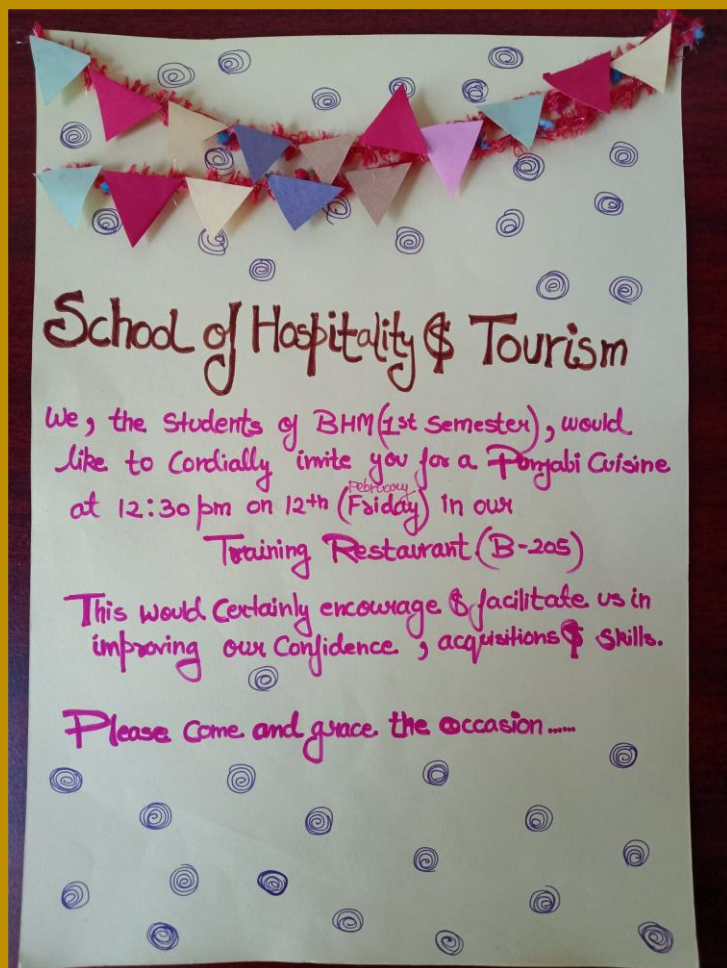 School of Hospitality & Tourism
We, the Students of BHM (1st Semester), would
like to Cordially invite you for a Punjabi Cuisine
February
at 12:30 pm on 12th (Friday) in our
Training Restaurant (B-205)
This would Certainly encourage & facilitate us in
improving our Confidence, acquisitions & Skills.
Please Come and grace the occasion......